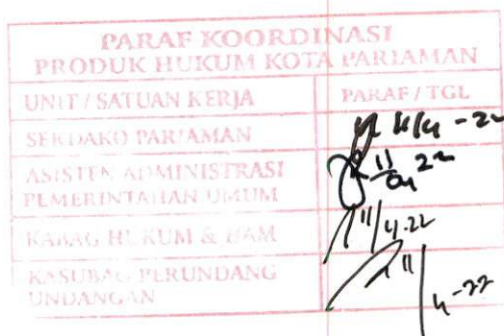 PARAF KOORDINASI
PRODUK HUKUM KOTA PARIAMAN
UNIT / SATUAN KERJA PARAF / TGL
SEKDAKO PARIAMAN
ASISTEN ADMINISTRASI
PEMERINTAHAN UMUM 11/04 22
KABAG HUKUM & HAM 11/4-22
KASUBAG PERUNDANG
UNDANGAN 11/4-22